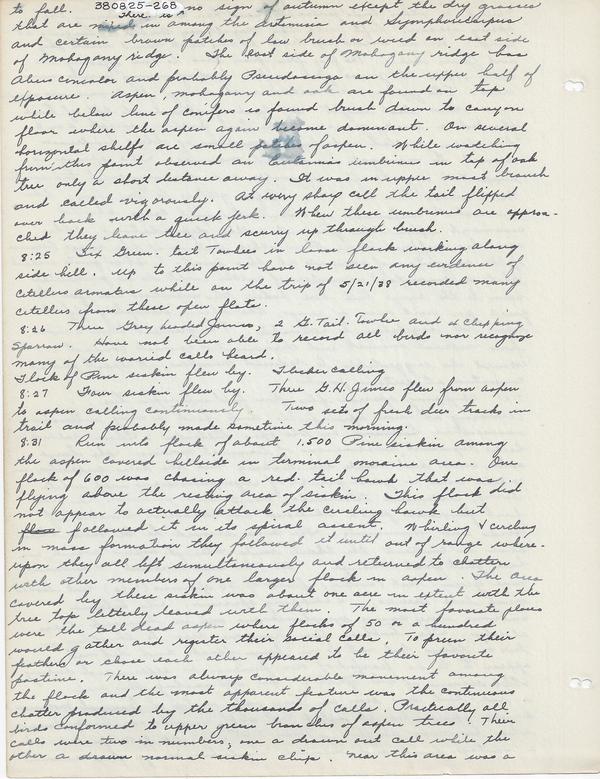 to fall. 380825-268 no sign of autumn except the dry grasses
There is
that are mixed in among the artemisia and Symphoricarpus
and certain brown patches of low brush or weed on east side
of Mohogany ridge. The east side of Mohogany ridge has
Abies concolor and probably Pseudosuga on the upper half of
exposure. Aspen, mohogany and oak are found on top
while below line of conifers is found brush down to canyon
floor where the aspen again become dominant. On several
horizontal shelfs are small patches of aspen. While watching
from this point observed an Eutamias umbrinus in top of oak
tree only a short distance away. It was in upper most branch
and called vigorously. At every sharp call the tail flipped
over back with a quick jerk. When these umbrinus are approa-
ched they leave tree and scurry up through brush.
8:25 Six Green. tail Towhees in loose flock working along
side hill. Up to this point have not seen any evidence of
citellus armatus while on the trip of 5/21/38 recorded many
citellus from these open flats.
8:26 Three Grey headed Junco, 2 G. Tail. Towhee and 2 Chipping
Sparrow. Have not been able to record all birds nor recognize
many of the worried calls heard.
Flock of Pine siskin flew by. Flicker calling
8:27 Four siskin flew by. Three G.H. Junco flew from aspen
to aspen calling continuously. Two sets of fresh deer tracks in
trail and probably made sometime this morning.
8:31 Run into flock of about 1,500 Pine siskin among
the aspen covered hillside in terminal moraine area. One
flock of 600 was chasing a red. tail hawk that was
flying above the resting area of siskin. This flock did
not appear to actually attack the circling hawk but
followed it in its spiral assent. Whirling & circling
in mass formation they followed it until out of range where-
upon they all left simultaneously and returned to chatter
with other members of one larger flock in aspen. The area
covered by these siskin was about one acre in extent with the
tree top litterly leaved with them. The most favorate places
were the tall dead aspen where flocks of 50 or a hundred
would gather and register their social calls. To preen their
feathers or chase each other appeared to be their favorite
pastime. There was always considerable movement among
the flock and the most apparent feature was the continuous
chatter produced by the thousands of calls. Practically all
birds conformed to upper green branches of aspen trees. Their
calls were two in numbers, one a drawn out call while the
other a drawn normal siskin chip. Near this area was a